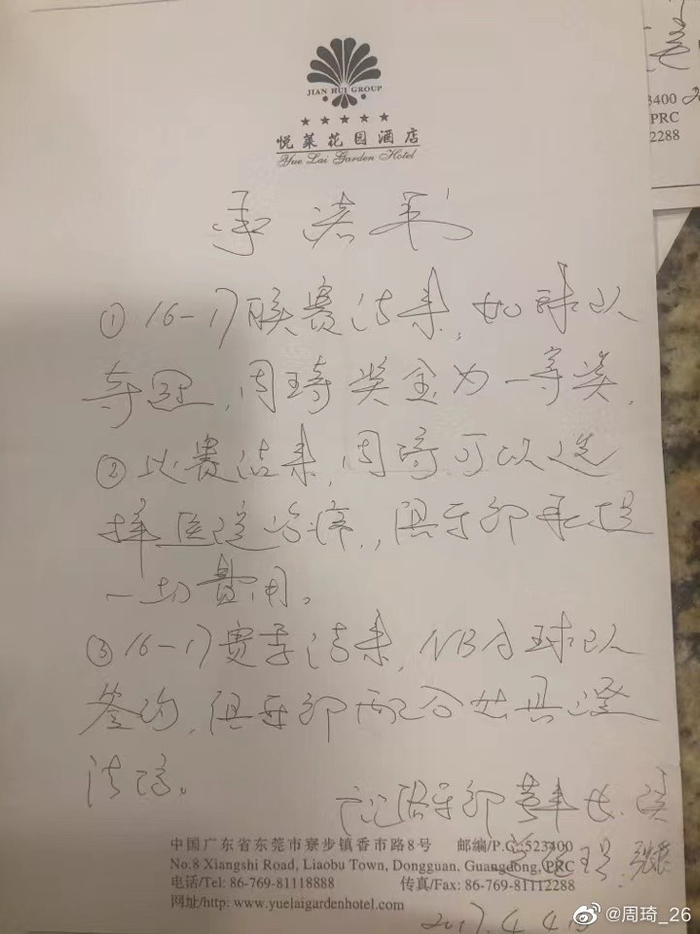 JIAN HUI GROUP
★★★★★
悦莱花园酒店
Yue Lai Garden Hotel
3400
PRC
2288
承诺书
① 16-17联赛结束,如球队
夺冠,周琦奖金为一等奖.
② 比赛结束,周琦可以选
择医疗治疗,俱乐部承担
一切费用。
③ 16-17赛季结束,NBA球队
签约,俱乐部配合出具澄
清信。
俱乐部董事长
中国广东省东莞市寮步镇香市路8号 邮编/P.C.:523400
No.8 Xiangshi Road, Liaobu Town, Dongguan, Guangdong, PRC
电话/Tel: 86-769-81118888 传真/Fax: 86-769-81112288
网址/http: www.yuelaigardenhotel.com
2017.4.4
@周琦_26